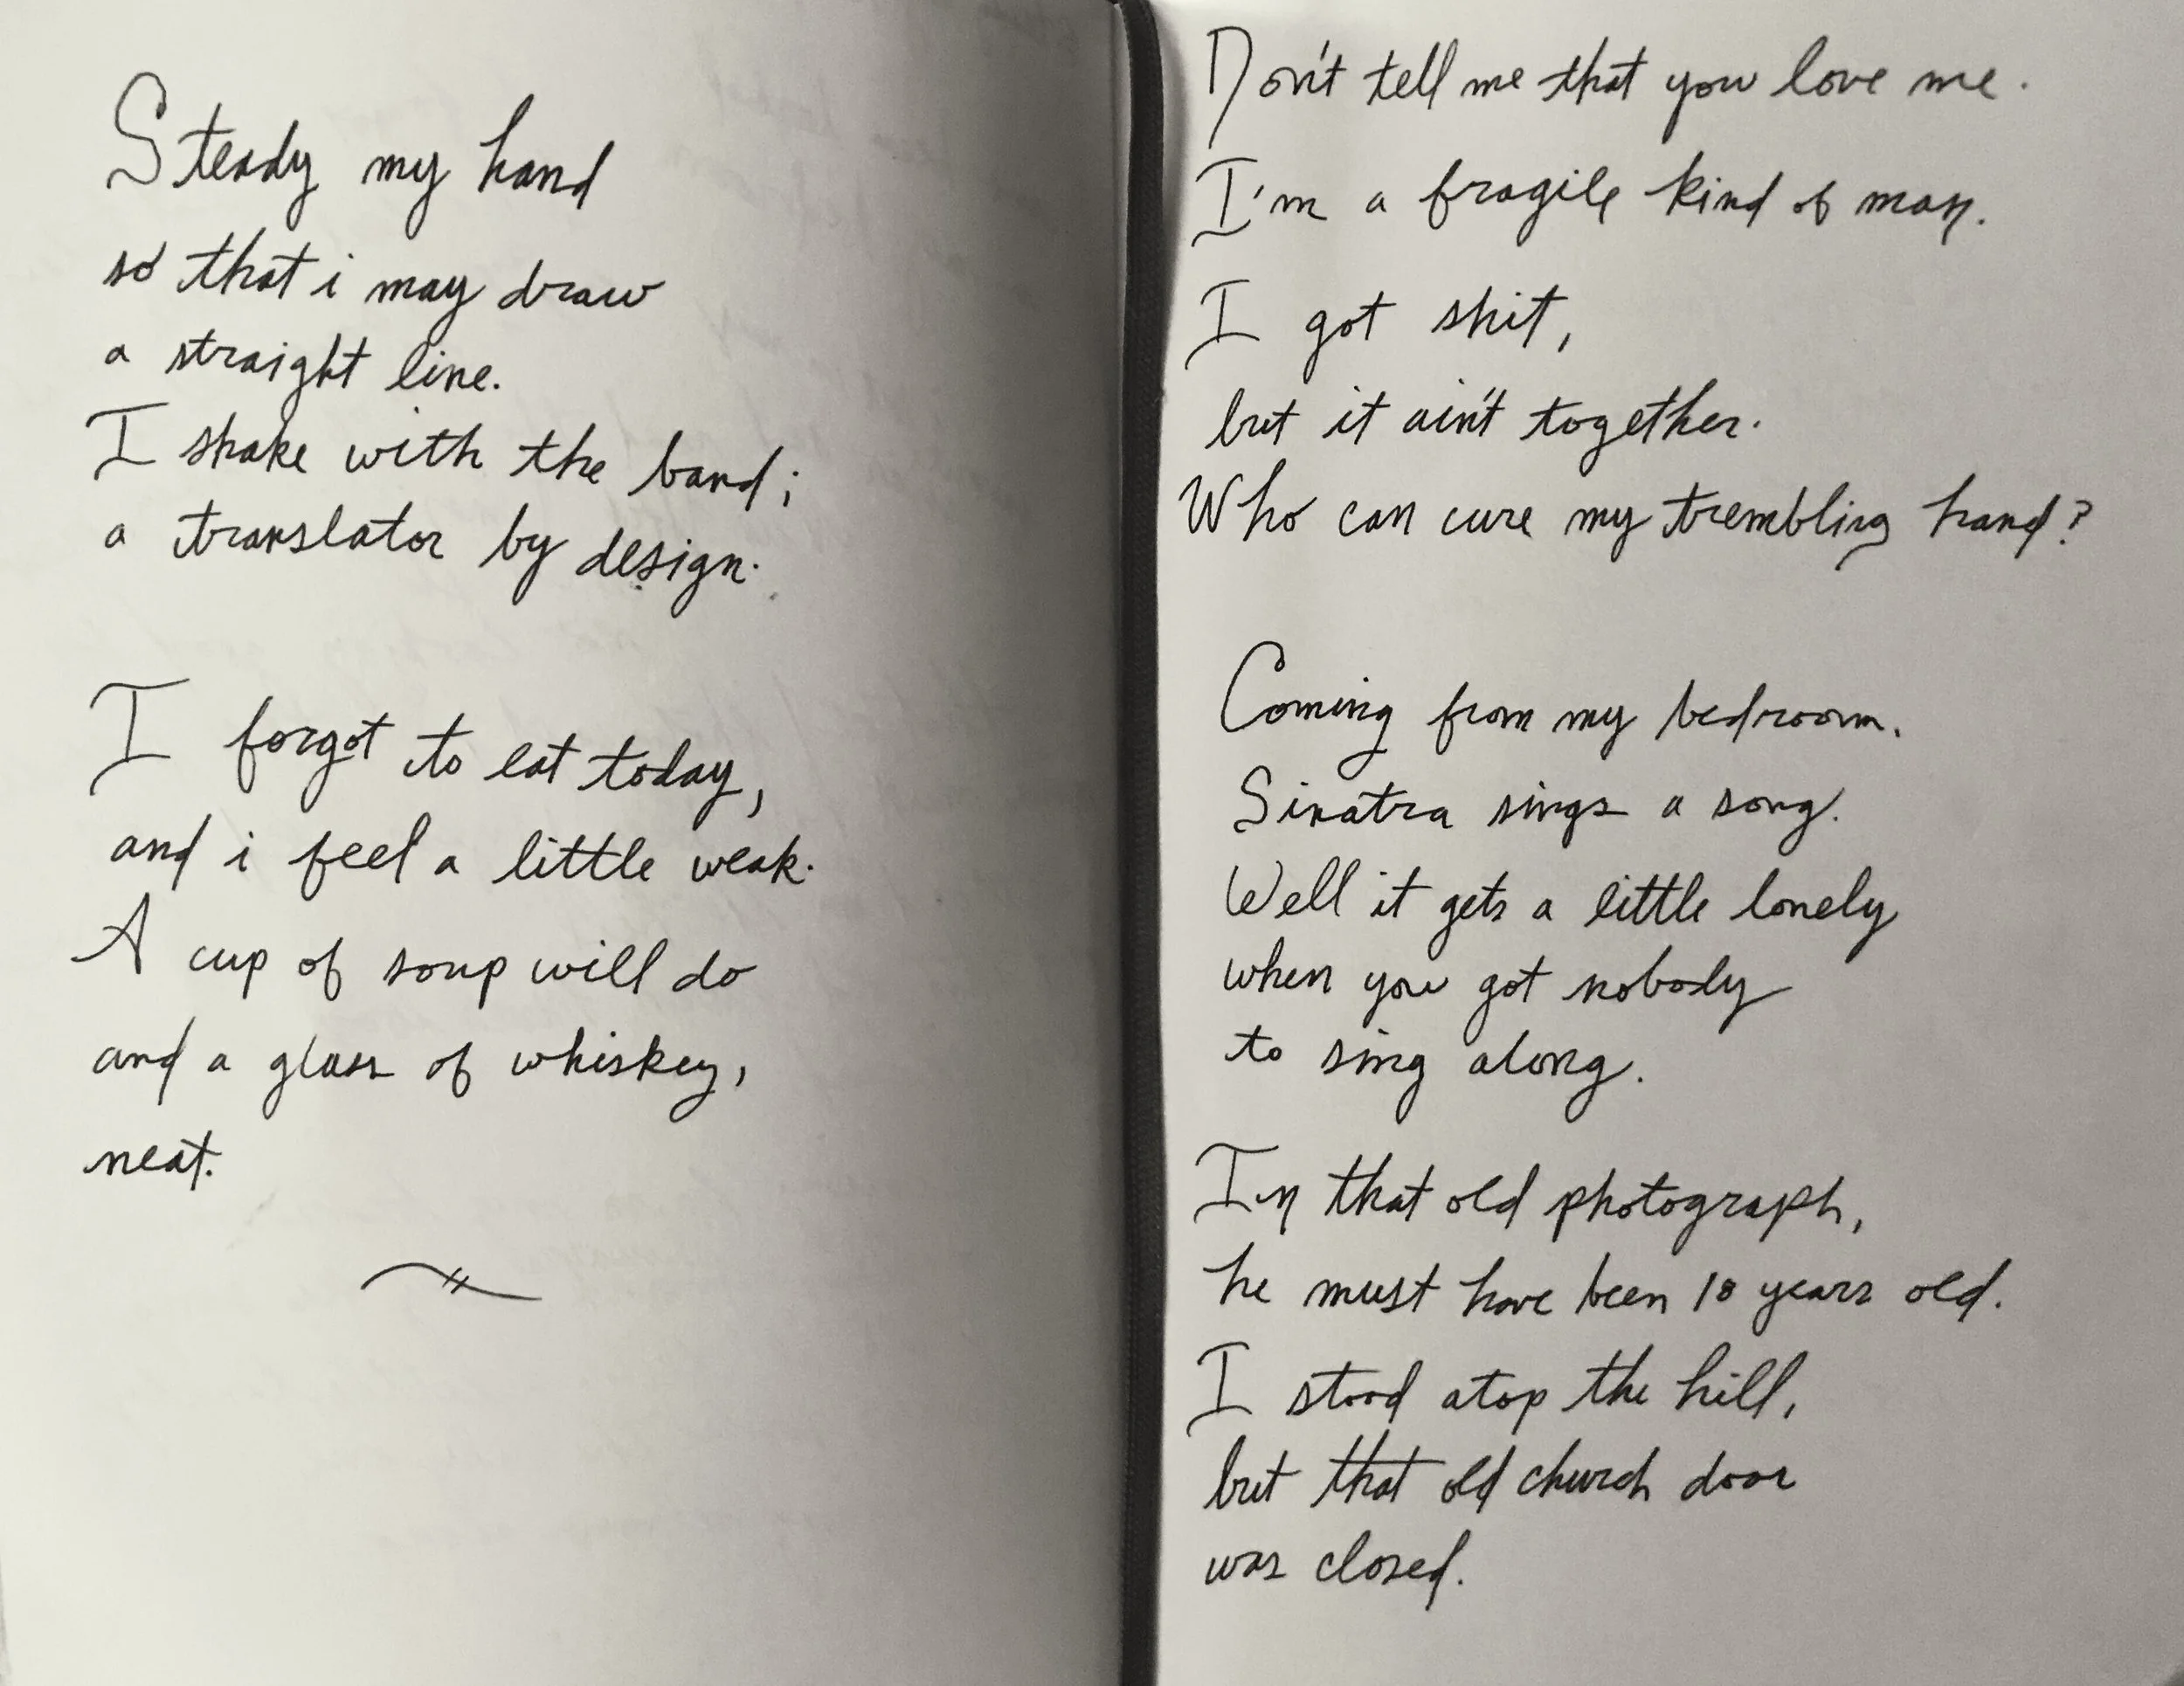 Steady my hand
so that i may draw
a straight line.
I shake with the band;
a translator by design.
I forgot to eat today,
and i feel a little weak.
A cup of soup will do
and a glass of whiskey,
neat.
Don't tell me that you love me.
I'm a fragile kind of man.
I got shit,
but it ain't together.
Who can cure my trembling hand?
Coming from my bedroom.
Sinatra sings a song.
Well it gets a little lonely
when you got nobody
to sing along.
In that old photograph,
he must have been 18 years old.
I stood atop the hill,
but that old church door
was closed.